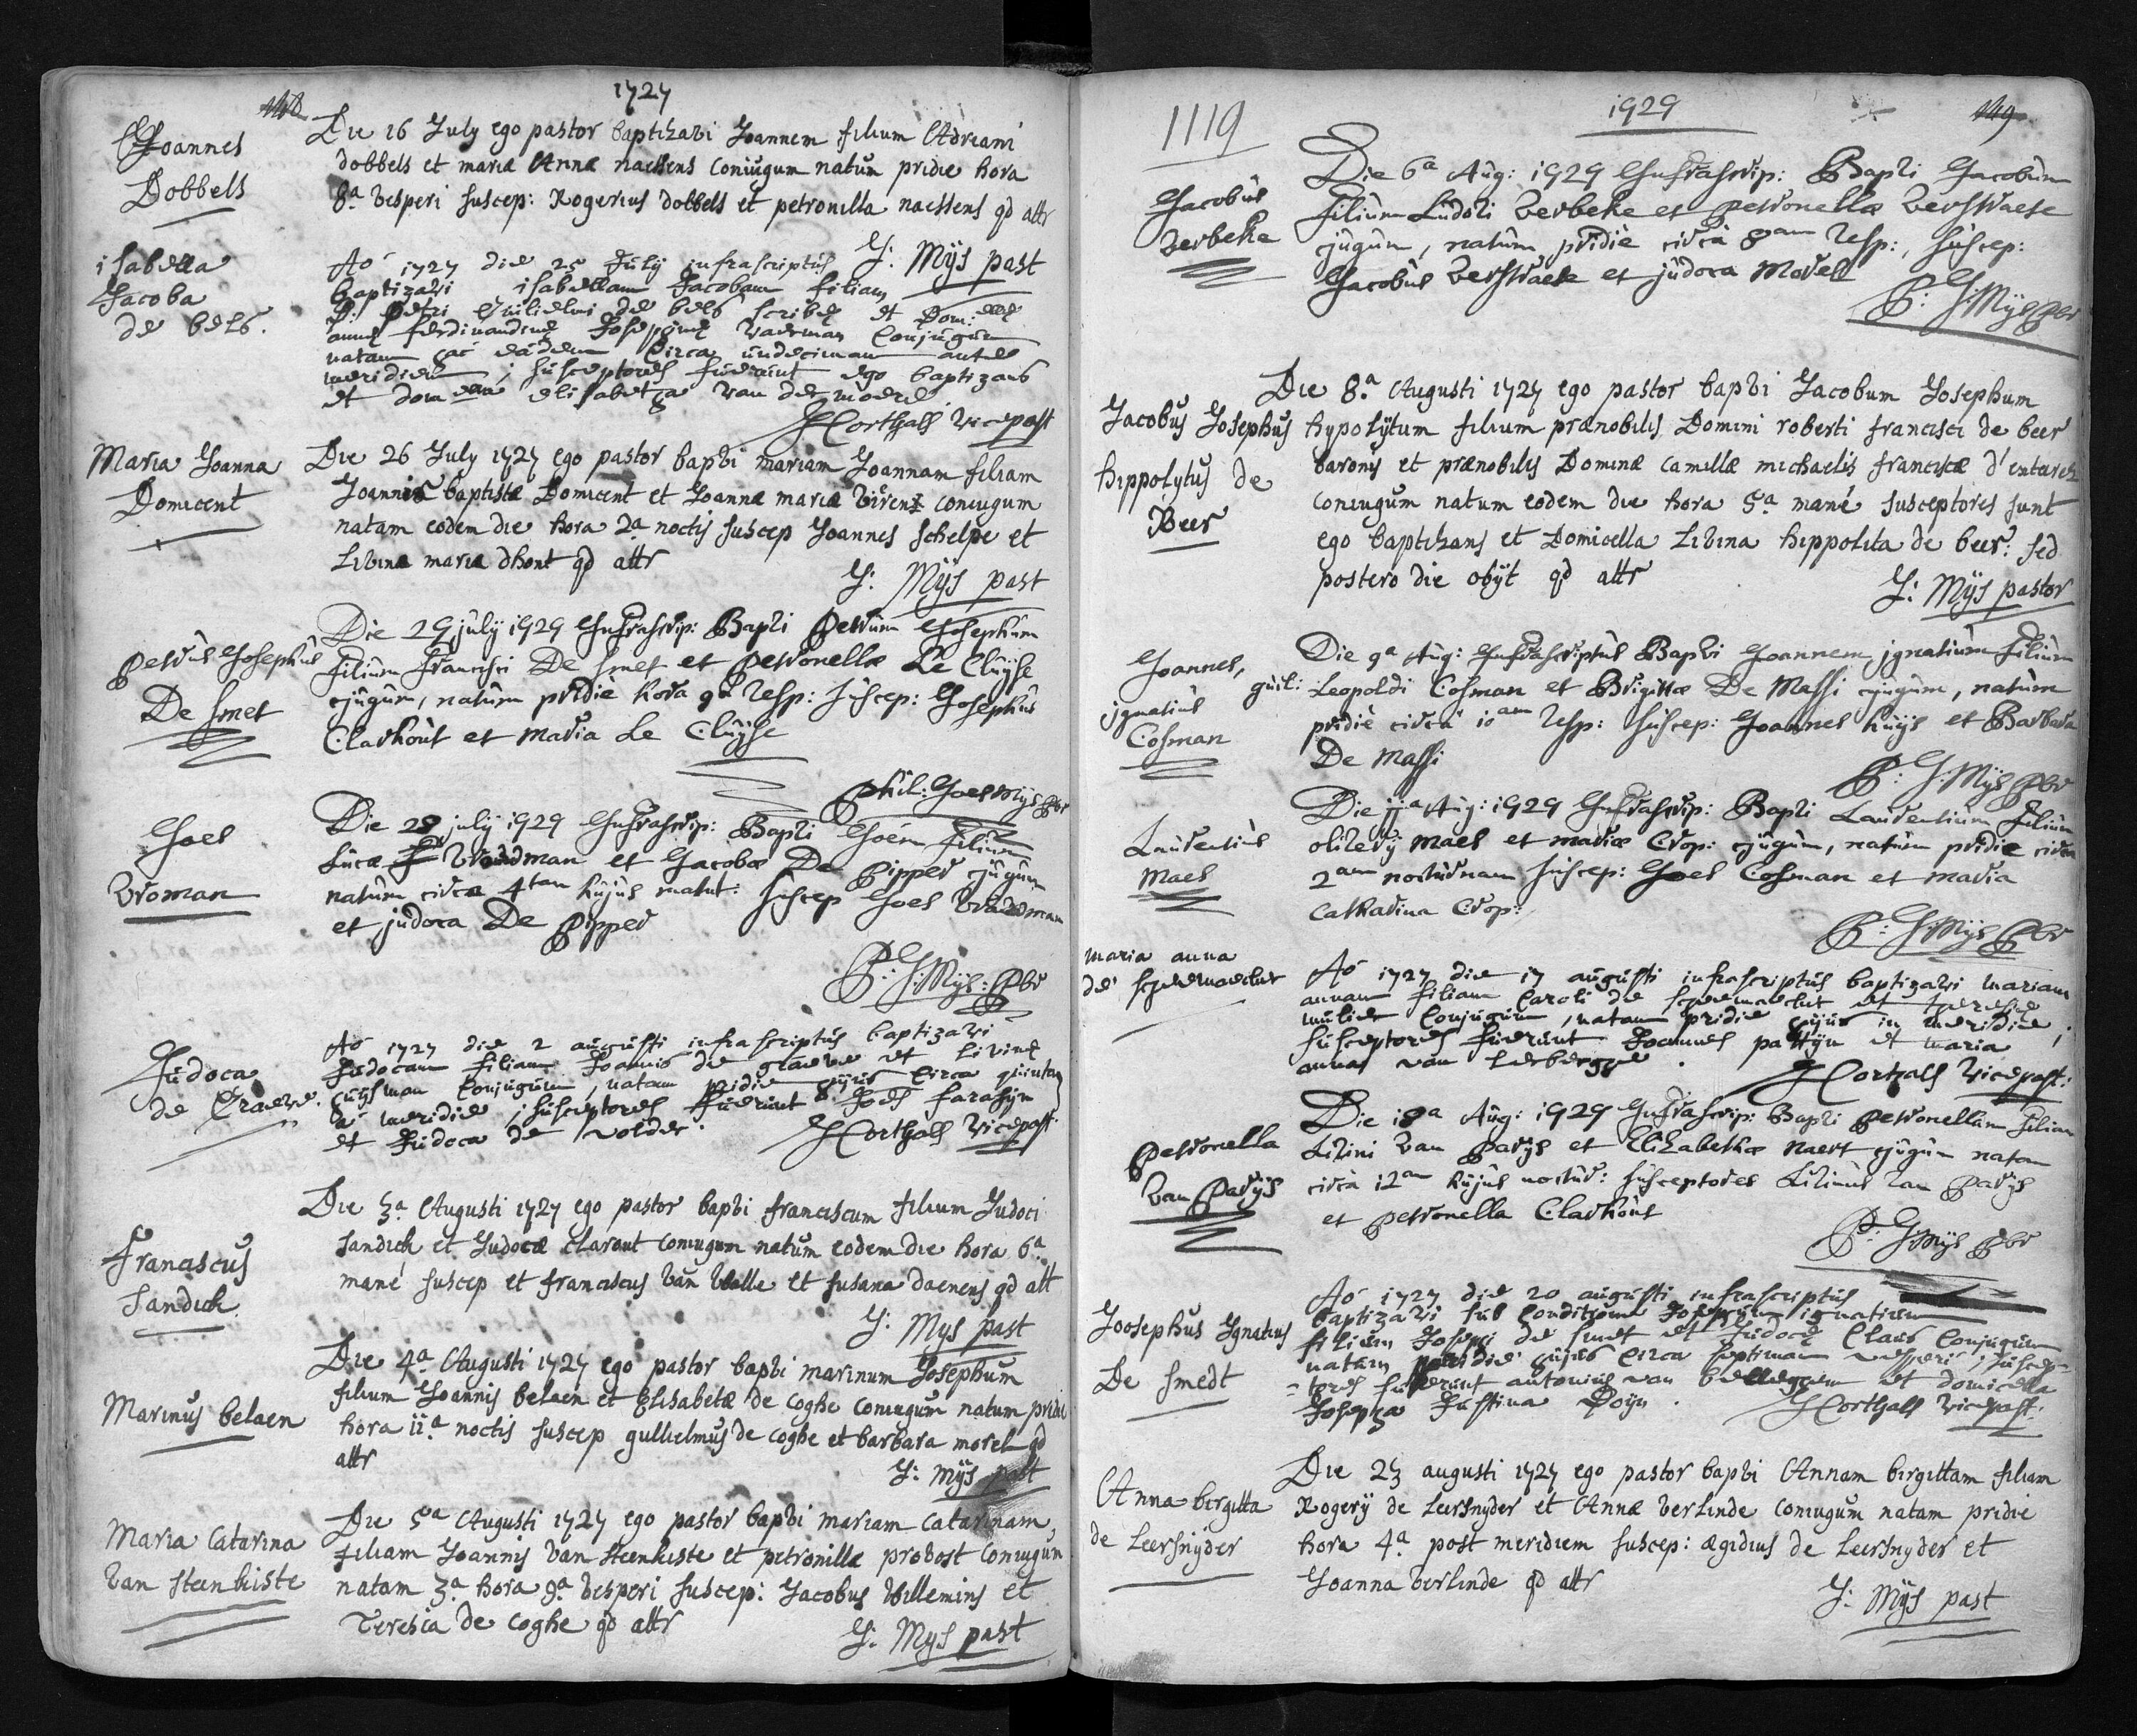 1727
Joannes
Dobbels
Die 16 July ego pastor baptizavi Joannem filium Adreani
dobbels et mariæ Annæ naessens coniugum natum pridie hora
8.a vesperi suscep: Rogerius dobbels et petronilla naessens qd attr
J: Mÿs past
isabella
Jacoba
de bels.
Ao 1727 die 25 Julij infrascriptus
baptizavi isabellam Jacobam filiam
D: petri Guilielmi de bels scribæ et Dom:
annæ ferdinandinæ Josephinæ vaerman Conjugum
natam hac eadem Circa undecimam ante
meridiem; susceptores fuerunt ego baptizans
et dom elisabetha van de moere
J Corthals vicepast
Maria Joanna
Domicent
Die 26 July 1727 ego pastor bapvi mariam Joannam filiam
Joannis baptistæ Domicent et Joannæ mariæ coniugum
natam eodem die hora 2.a noctis suscep Joannes schelpe et
Livina maria dhont qd attr
J: Mÿs past
petrus Josephus
De smet
Die 29 julÿ 1929 Infrascrip: Bapvi petrum Josephum
filium francisci De smet et petronellæ Le Cluÿse
cjugum, natum pridiè hora 9a Vesp: suscep: Josephus
Clarhout et maria Le Cluÿse
phil: Joes Mÿs pbr
Joes
Vroman
Die 29 julÿ 1929 Infrascrip: Bapvi Joēm filium
Lucæ Vroman et Jacobæ De pipper cjugum
natum circa 4tam hujus matut: suscep Joes
et judoca De pipper
P: J: Mÿs: pbr
Judoca
de Graeve.
Ao 1727 die 2 augusti infrascriptus baptizavi
Judocam filiam Joannis de graeve et livinæ
cuÿsman Conjugum, natam pridie hujus Circa quintam
à meridie; susceptores fuerunt Joes farasijn
et Judoca de volder.
J Corthals vicepast.
Franciscus
Sandick
Die 3.a Augusti 1727 ego pastor bapvi franciscum filium Judoci
Sandick et Judocæ clarout coniugum natum eodem die hora 6.a
mané suscep et franciscus van Walle et susana daenens qd att
J: Mys past
Marinus belaen
Die 4.a Augusti 1727 ego pastor bapvi marinum Josephum
filium Joannis belaen et Elisabetæ de coghe coniugum natum pridie
hora ii.a noctis suscep gullielmus de coghe et barbara morel qd
attr
J: mÿs past
Maria Catarina
Van steenkiste
Die 5.a Augusti 1727 ego pastor bapvi mariam Catarinam,
filiam Joannis van steenkiste et petronillæ provost coniugum
natam 3.a hora 9.a vesperi suscep: Jacobus Willemins et
Teresia de coghe qd attr
J: Mys past
1119
1929
149
Jacobus
Verbeke
Die 6a Aug: 1929 Infrascrip: Bapvi Jacobum
filium Ludovi Verbeke et petronellæ Verstraete
cjugum, natum pridiè circà 8am Vesp:, suscep:
Jacobus Verstraete et judoca Morel
P: J: Mÿs pbr
Jacobus Josephus
hippolytus de
Beer
Die 8.a Augusti 1727 ego pastor bapvi Jacobum Josephum
hypolÿtum filium prænobilis Domini roberti francisci de beer
baronis et prænobilis Dominæ Camillæ michaelis franciscæ
coniugum natum eodem die hora 5.a mané susceptores sunt
ego baptizans et Domicella Livina hippolita de beer: sed
postero die obÿt qd attr
J: Mÿs pastor
Joannes,
ignatius
Cosman
Die 9a Aug: Infrascriptus Bapvi Joannem ignatium filium
guil: Leopoldi Cosman et Brigittæ De Massi cjugum, natum
pridiè circà 10am Vesp: suscep: Joannes huÿs et Barbara
De Massi
P: J: Mÿs pbr
Laurentius
Maes
Die jja Aug: 1929 Infrascrip: Bapvi Laurentium filium
oliverÿ maes et mariæ Crop: cjugum, natum pridie circa
2am nocturnam suscep: Joes Cosman et maria
Catharina Crop:
P: J: Mÿs pbr
maria anna
de
Ao 1727 die 17 augusti infrascriptus baptizavi mariam
annam filiam Caroli de et theresiæ
mulier Conjugum, natam pridie hujus in meridie;
susceptores fuerunt Joannes pattijn et maria
anna van lerberghe.
J Corthals vicepast:
Petronella
Van Parÿs
Die 18a Aug: 1929 Infrascrip: Bapvi petronellam filiam
Livini Van Parÿs et Elizabethæ Naert cjugum natam
circà 12am hujus noctur: susceptores Livinus Van Parÿs
et petronella Clarhout
P: J: Mÿs pbr
Joosephus Ignatius
De Smedt
Ao 1727 die 20 augusti infrascriptus
baptizavi sub Conditione Josephum ignatium
filium Josephi de smet et Judocæ Claus Conjugum
natum pridie hujus Circa septimam vesperi; suscep-
tores fuerunt antonius van belleghem et domicella
Josepha Justina Poijn.
J Corthals vicepast:
Anna birgitta
de Leersnÿder
Die 23 augusti 1727 ego pastor bapvi Annam birgittam filiam
Rogerÿ de Leersnyder et Annæ verlinde coniugum natam pridie
hora 4.a post meridiem suscep: ægidius de Leersnyder et
Joanna verlinde qd attr
J: Mÿs past